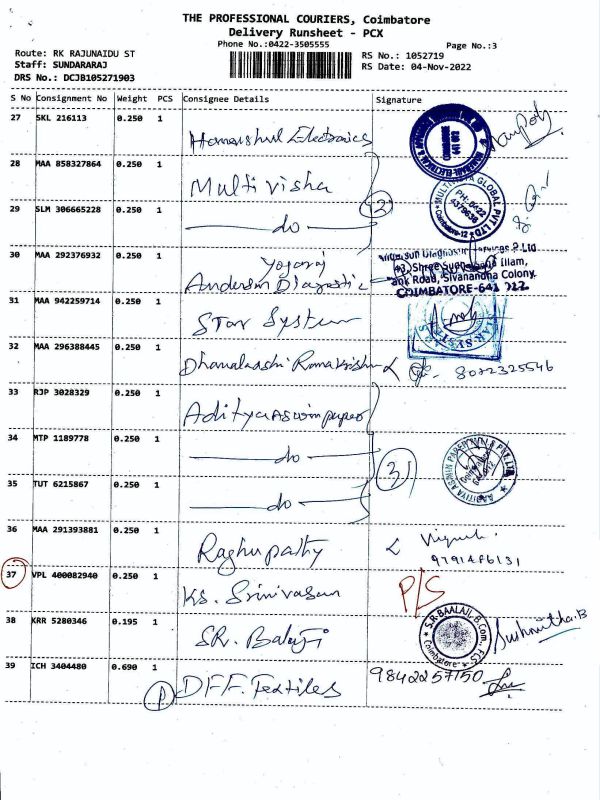 THE PROFESSIONAL COURIERS, Coimbatore
Delivery Runsheet - PCX
Phone No.:0422-3505555
Page No.:3
Route: RK RAJUNAIDU ST
Staff: SUNDARARAJ
DRS No.: DCJB105271903
RS No.: 1052719
RS Date: 04-Nov-2022
S No Consignment No Weight PCS Consignee Details Signature
27 SKL 216113 0.250 1 Electronics
28 MAA 858327864 0.250 1 Multivisha
29 SLM 306665228 0.250 1 do 2
MULTIVISTA GLOBAL PVT LTD
PH: 0422
4379636
Coimbatore-12
30 MAA 292376932 0.250 1 Yogaraj
Anderson Diagnostic
43, Shree Illam,
Road, Sivanandha Colony.
COIMBATORE-641 012
31 MAA 942259714 0.250 1 Star System
32 MAA 296388445 0.250 1 8072325546
33 RJP 3028329 0.250 1
34 MTP 1189778 0.250 1 do 3
35 TUT 6215867 0.250 1 do
36 MAA 291393881 0.250 1 Raghupathy
9791486131
37 VPL 400082940 0.250 1 KS. Srinivasan P/S
38 KRR 5280346 0.195 1 SR. Balaji
S.R.BAALAJI, B.Com., FCS
Coimbatore
39 ICH 3404480 0.690 1 DFF. Textiles 9842257150